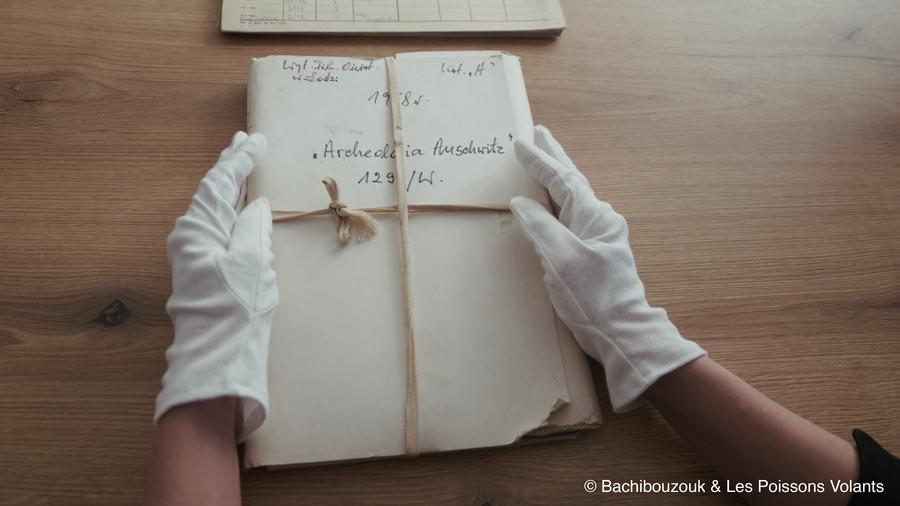 Wyt. Film. Oświat.
w Łodzi
Kat. „A"
19 8 r.
„Archeol ia Auschwitz"
129 /W.
© Bachibouzouk & Les Poissons Volants